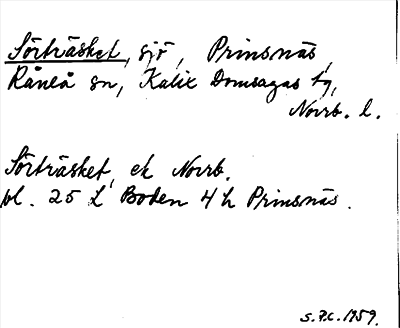 Sörträsket, sjö, Prinsnäs,
Råneå sn, Kalix Domsagas tg,
Norrb. l.
Sörträsket, ek Norrb.
bl. 25 L Boden 4 h Prinsnäs.
S.P.C. 1959.